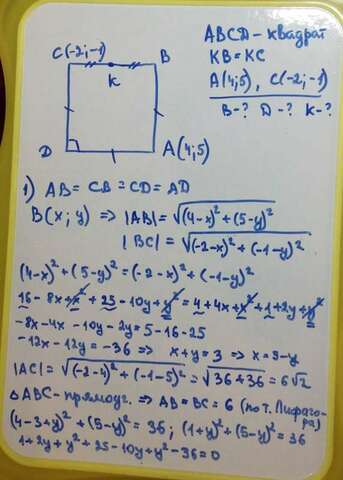 ABCD - квадрат
KB = KC
A(4;5), C(-2;-1)
B-? D-? K-?
C(-2;-1)
B
K
D
A(4;5)
1) AB = CB = CD = AD
B(x;y) => |AB| = √((4-x)²+(5-y)²)
|BC| = √((-2-x)²+(-1-y)²)
(4-x)²+(5-y)² = (-2-x)²+(-1-y)²
16-8x+x²+25-10y+y² = 4+4x+x²+1+2y+y²
-8x-4x-10y-2y = 5-16-25
-12x-12y = -36 => x+y = 3 => x = 3-y
|AC| = √((-2-4)²+(-1-5)²) = √(36+36) = 6√2
△ABC - прямоуг. => AB = BC = 6 (по т. Пифагора)
(4-3+y)²+(5-y)² = 36; (1+y)²+(5-y)² = 36
1+2y+y²+25-10y+y²-36=0